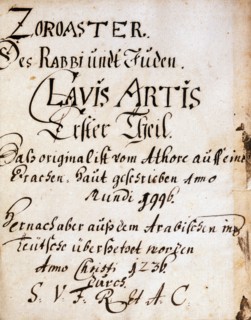 ZOROASTER.
Des RABBI undt Juden.
CLAVIS ARTIS
Erster Theil.
Daß original ist vom Athore auff eine
Drachen Haut geschrieben Anno
Mundi 1996.
Hernach aber auß dem Arabischen inß
Teutsche übersetzet worden
Anno Christi 1236.
durch.
S. V. F. R et A. C.